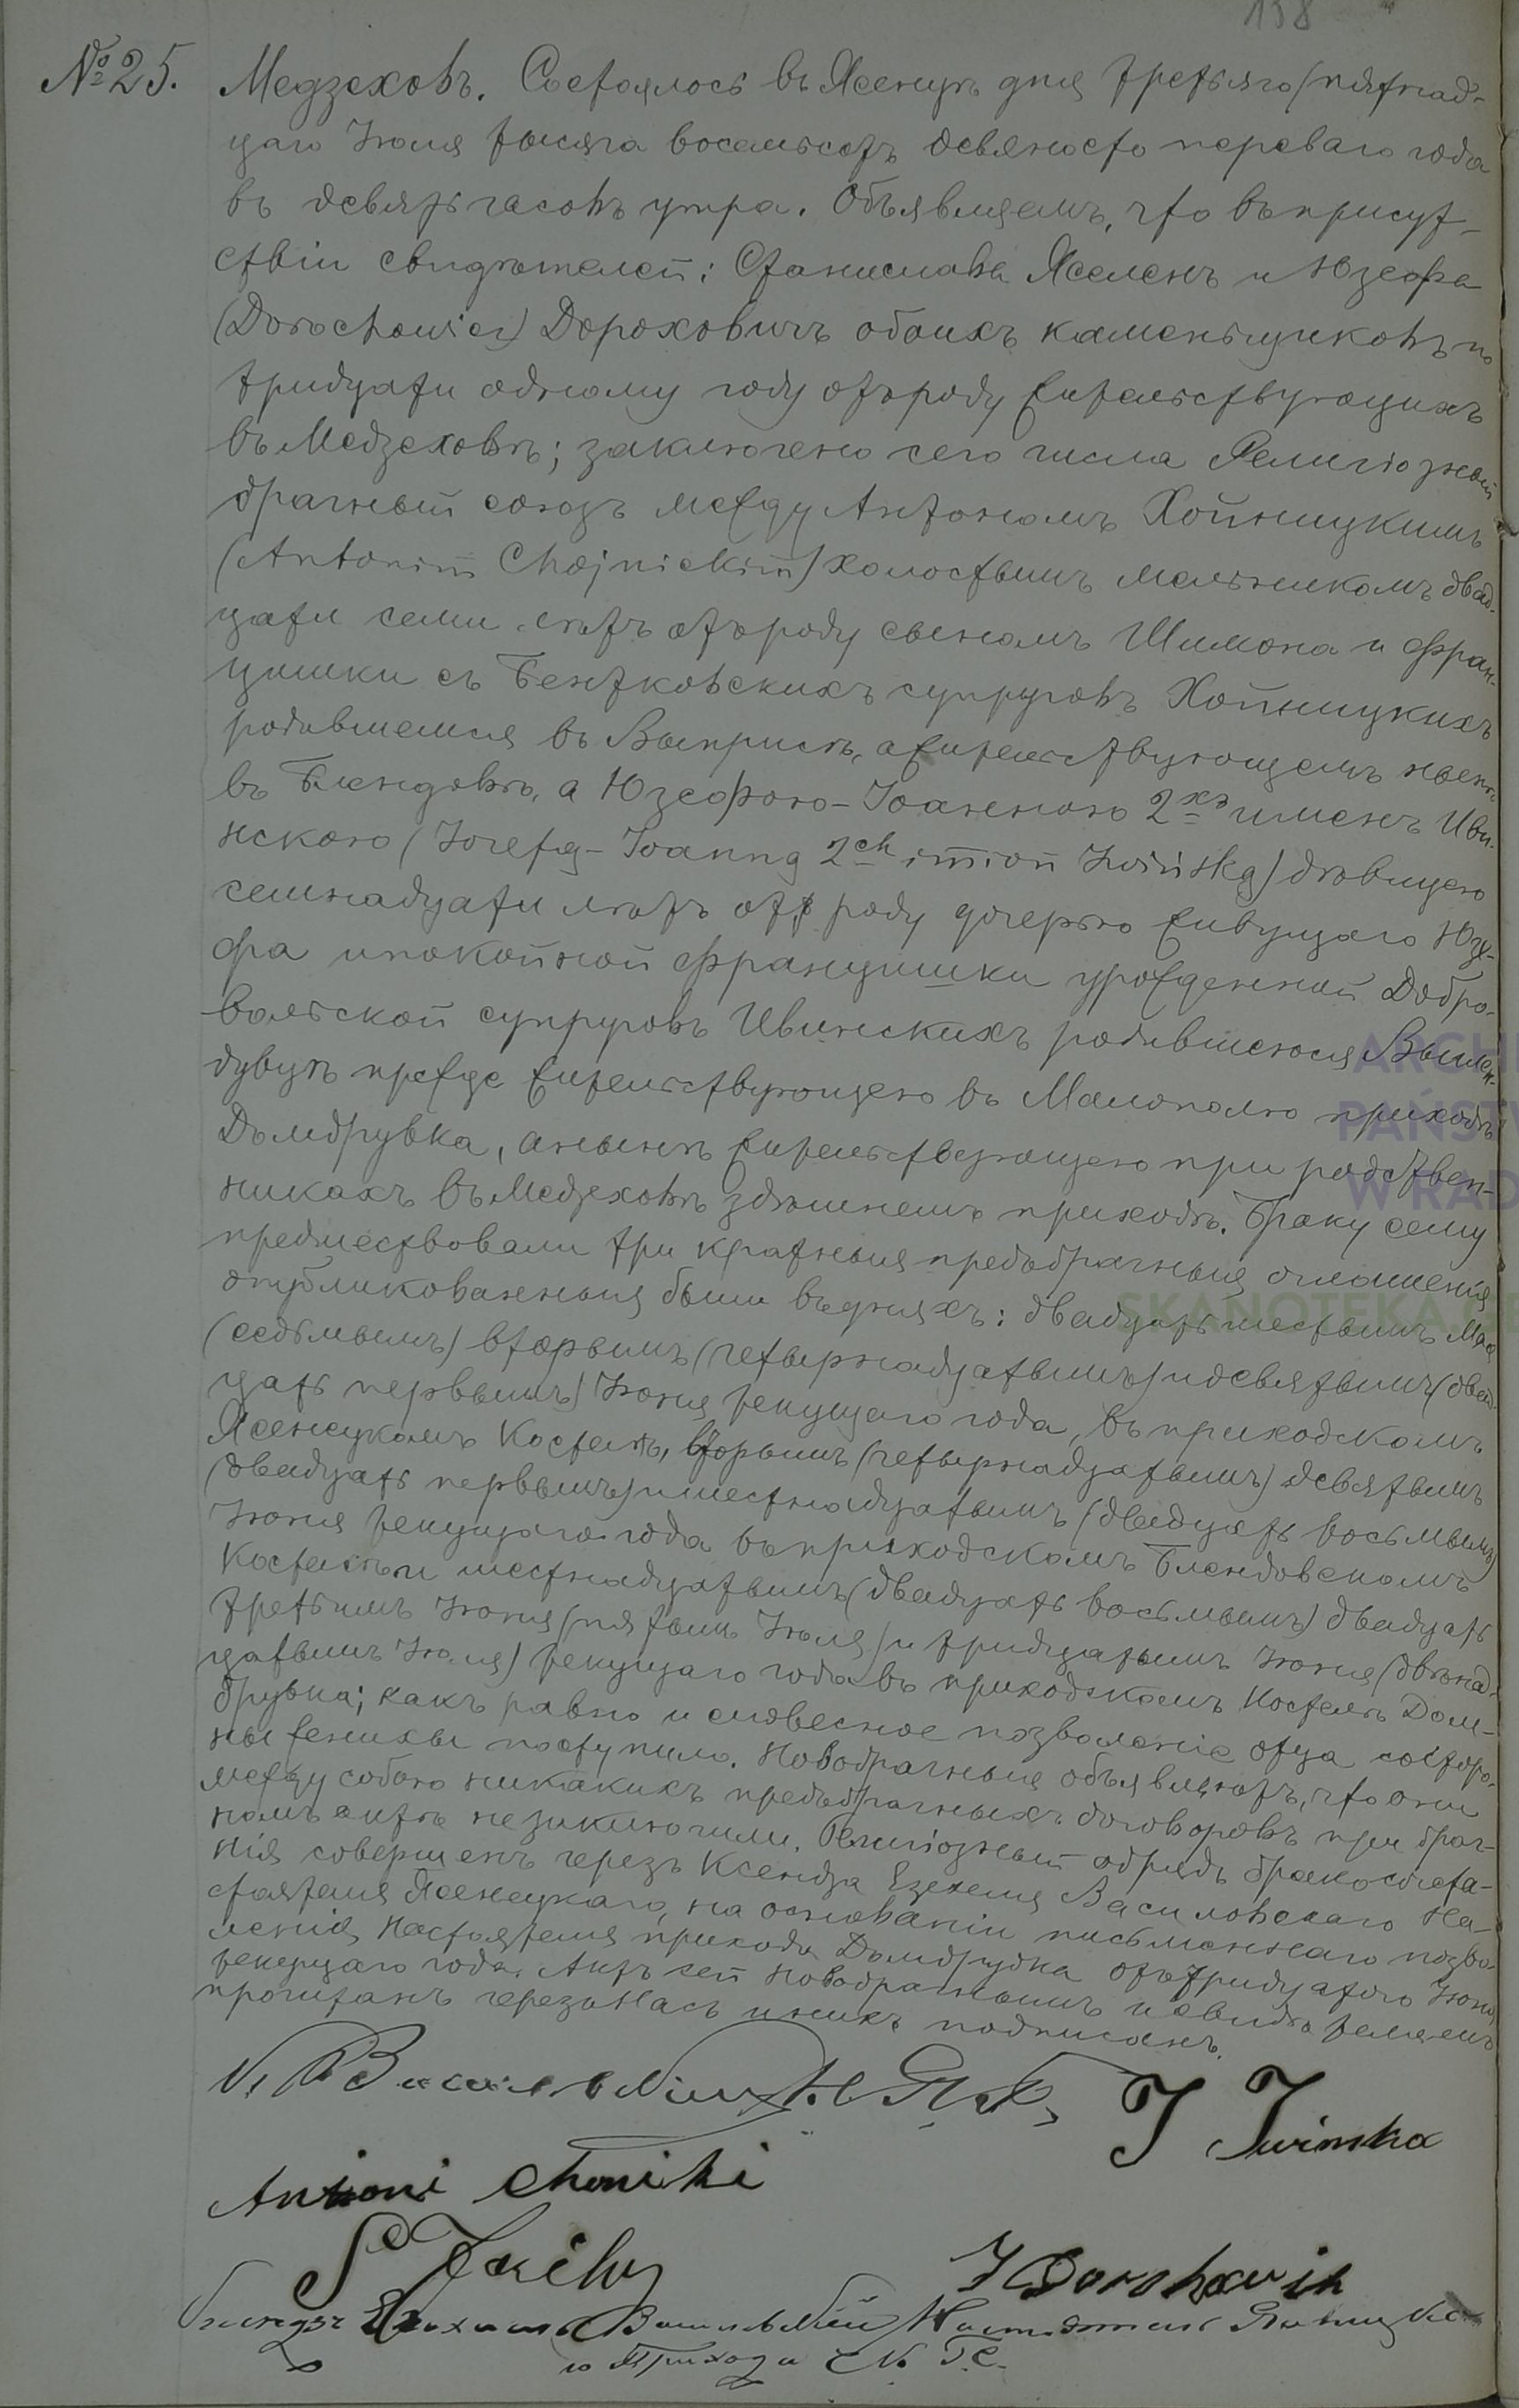 158
№ 25. Медзеховъ. Состоялось въ Ясенцѣ дня третьяго (пятнад-
цаго Іюля тысяча восемьсотъ девяносто перваго года
въ девять часовъ утра. Объявляемъ, что въ присут-
ствіи свидѣтелей: Станислава Яселекъ и Юзефа
(Dorochowicz) Дороховичъ обоихъ каменьщиковъ по
тридцати одному году отъ роду жительствующихъ
въ Медзеховѣ; заключено сего числа Религіозный
брачный союзъ между Антономъ Хойницкимъ
(Antonim Chojnickim) холостымъ мельникомъ двад-
цати семи лѣтъ отъ роду сыномъ Шимона и Фран-
цишки съ Бентковскихъ супруговъ Хойницкихъ
родившемся въ Выприскѣ, а жительствующемъ нынѣ
въ Блендовѣ, а Юзефою-Іоанною 2хъ именъ Иви-
нскою (Józefą-Joanną 2ch imion Iwińską) дѣвицею
семнадцати лѣтъ отъ роду дочерью живущаго Юзе-
фа и покойной Францишки урожденной Добро-
вольской супруговъ Ивинскихъ родившеюся
прежде жительствующею въ Малополю приходѣ
Домбрувка, а нынѣ жительствующею при родствен-
никахъ въ Медзеховѣ здѣшнемъ приходѣ. Браку сему
предшествовали три кратныя предъбрачныя оглашенія
опубликованныя были въ дняхъ: двадцать шестымъ Мая
(седьмымъ) вторымъ (четырнадцатымъ) и девятымъ (двад-
цать первымъ) Іюня текущаго года, въ приходскомъ
Ясенецкомъ Костелѣ, вторымъ (четырнадцатымъ) девятымъ
(двадцать первымъ) и шестнадцатымъ (двадцать восьмымъ)
Іюня текущаго года въ приходскомъ Блендовскомъ
Костелѣ и шестнадцатымъ (двадцать восьмымъ) двадцать
третьимъ Іюня (пятымъ Іюля) и тридцатымъ Іюня (двѣнад-
цатымъ Іюля) текущаго года въ приходскомъ Костелѣ Дом-
брувка; какъ равно и словесное позволеніе отца со сторо-
ны поступило. Новобрачныя объявляютъ, что они
между собою никакихъ предъбрачныхъ договоровъ при брач-
номъ актѣ не заключили. Религіозный обрядъ бракосочета-
нія совершенъ черезъ Ксендза Езехеля Василовскаго На-
стоятеля Ясенецкаго, на основаніи письменнаго позво-
ленія Настоятеля прихода Домбрувка отъ тридцатого Іюня
текущаго года. Актъ сей новобрачнымъ и свидѣтелямъ
прочитанъ черезъ насъ и нихъ подписанъ.
J Iwinska
Antoni Choniki
J Dorohowich
Ксендзъ Езехель Василовскій Настоятель Ясенецка-
го Прихода
ARCHI
PAŃST
W RAD
SKANOTEKA.GE